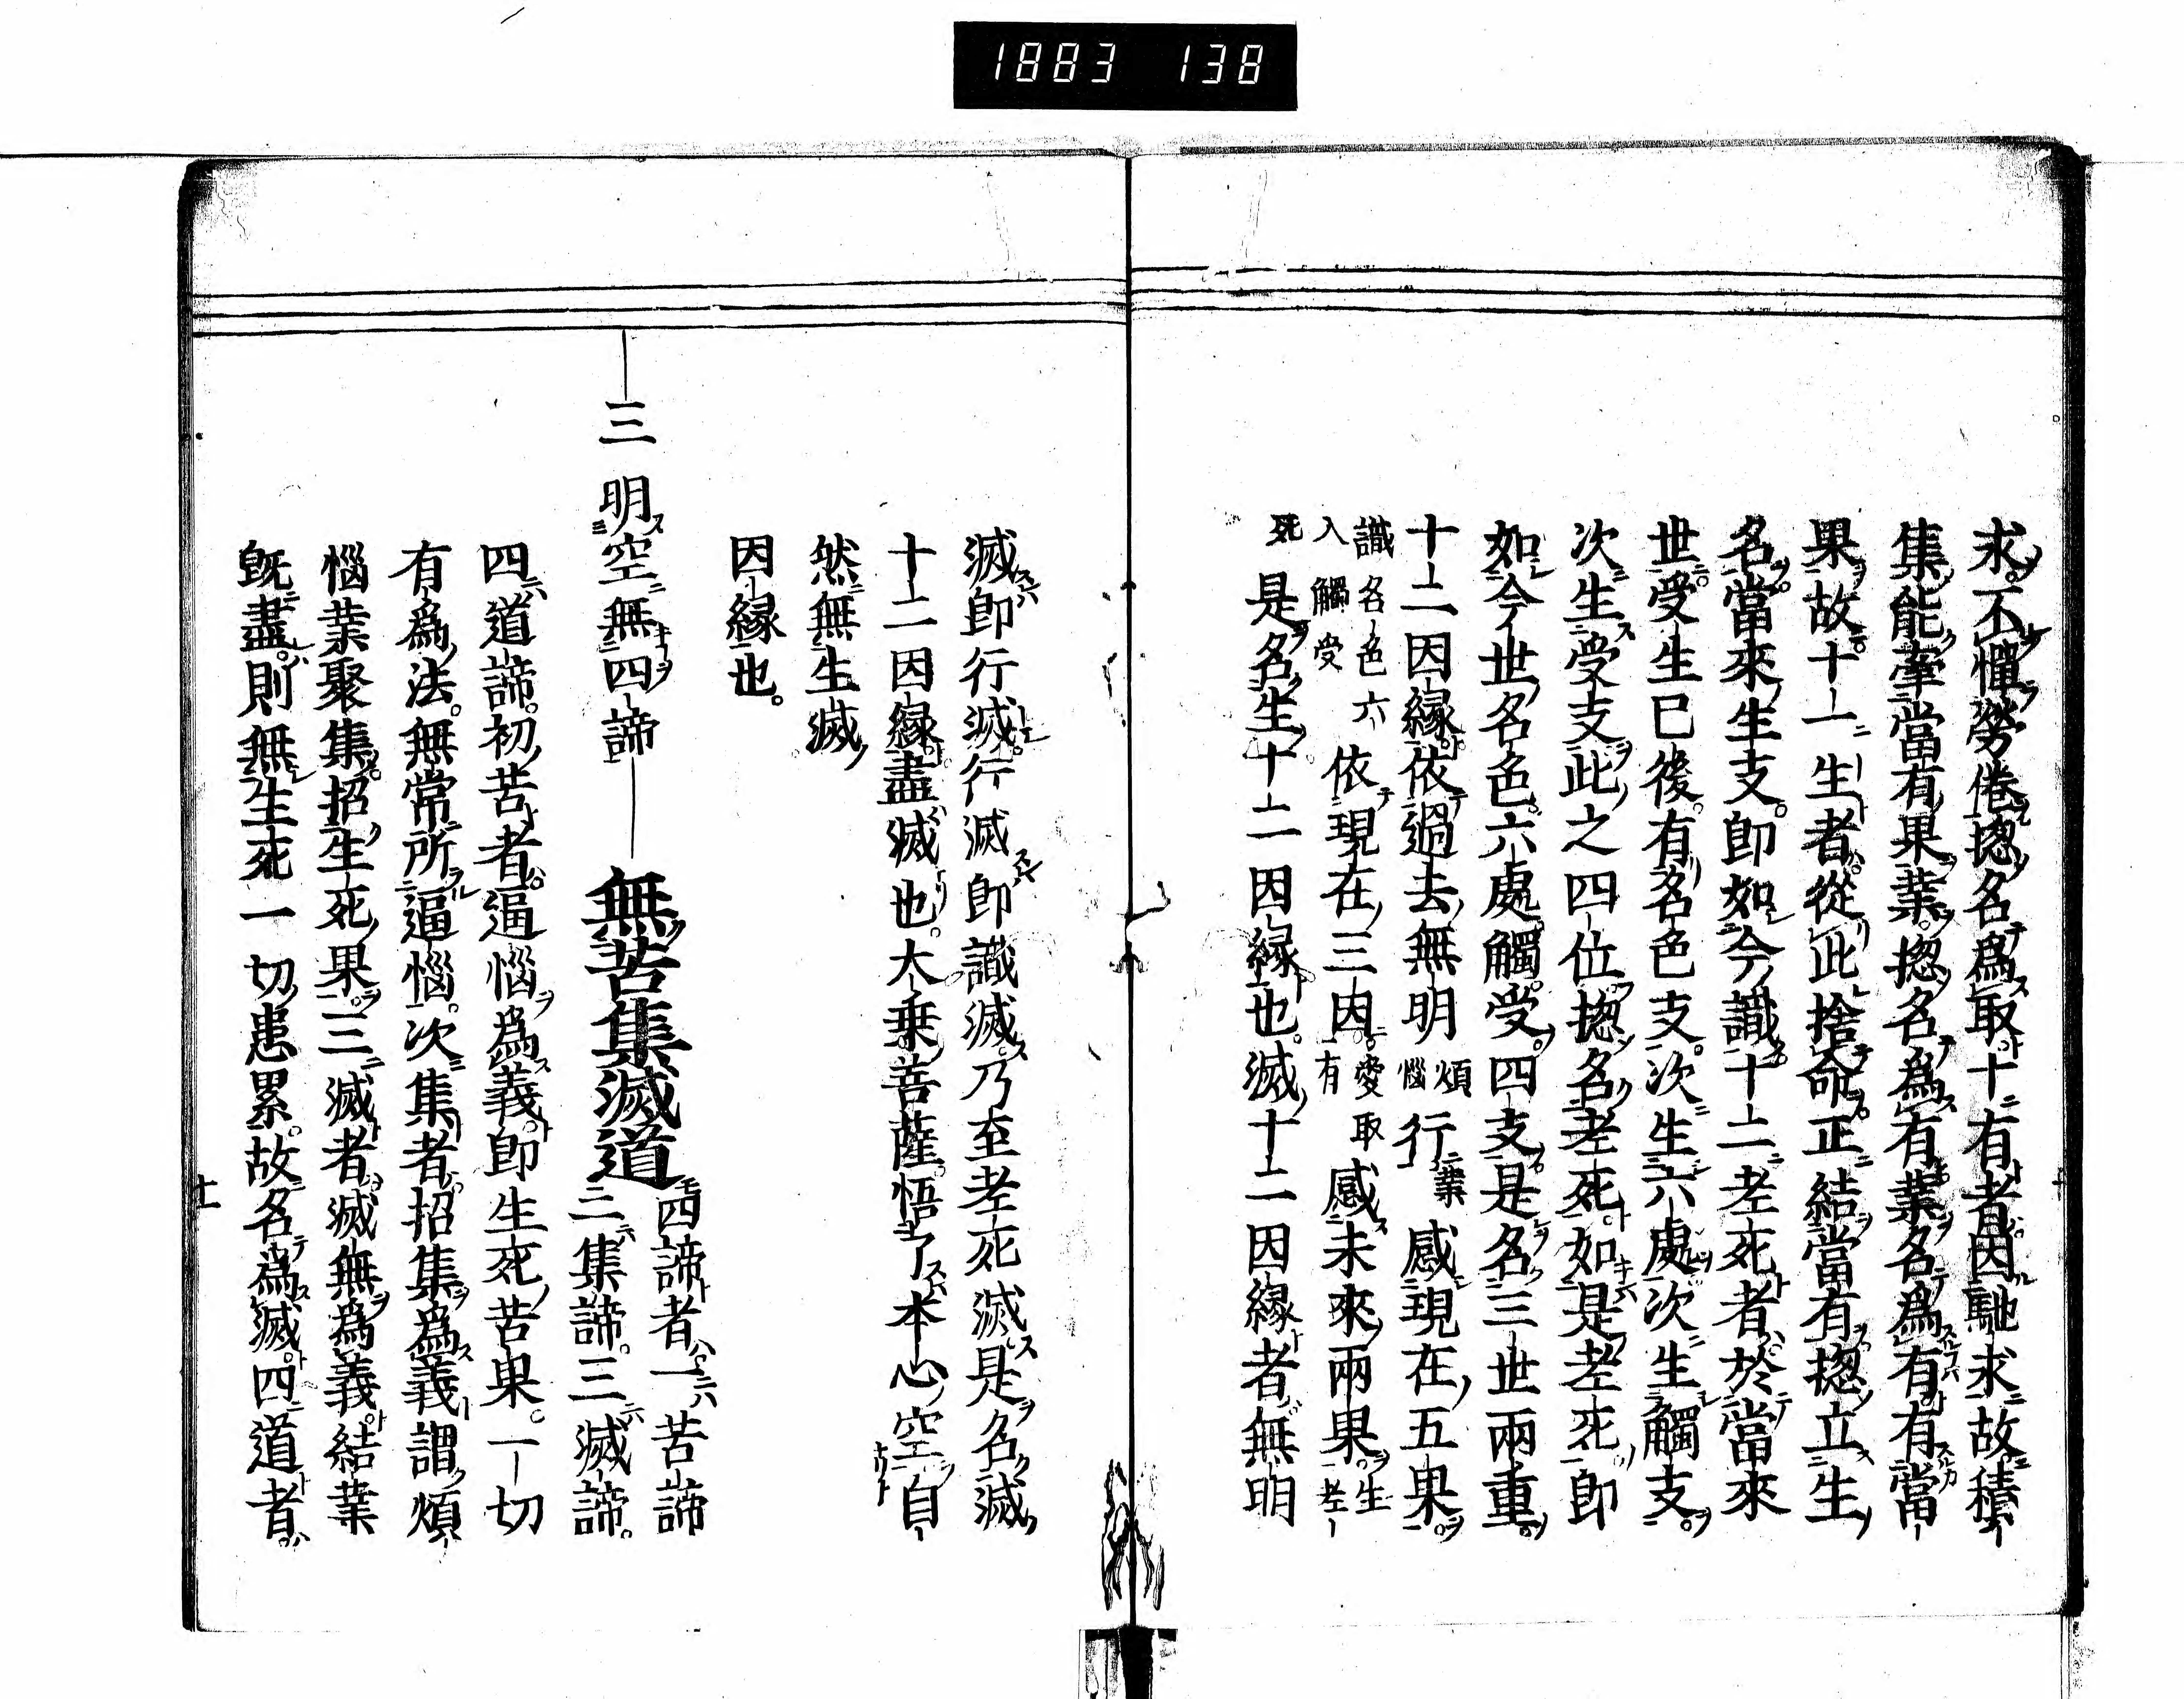 1883 138
求不憚勞倦揔名爲取十有者因馳求故積
集能牽當有果業揔名爲有業名爲有有當
果故十一生者從此捨命正結當有揔立生
名當來生支即如今識十二老死者於當來
世受生已後有名色支次生六處次生觸支
次生受支此之四位揔名老死如是老死即
如今世名色六處觸受四支是名三世兩重
十二因縁依過去無明煩惱行業感現在五果
識名色六入觸受依現在三因愛取有感未來兩果生老
死是名生十二因縁也滅十二因縁者無明
滅即行滅行滅即識滅乃至老死滅是名滅
十二因縁盡滅也大乗菩薩悟了本心空自
然無生滅
因縁也
三 明空無四諦 無苦集滅道四諦者一苦諦
二集諦三滅諦
四道諦初苦者逼惱爲義即生死苦果一切
有爲法無常所逼惱次集者招集爲義謂煩
惱業聚集招生死果三滅者滅無爲義結業
既盡則無生死一切患累故名爲滅四道者
十一